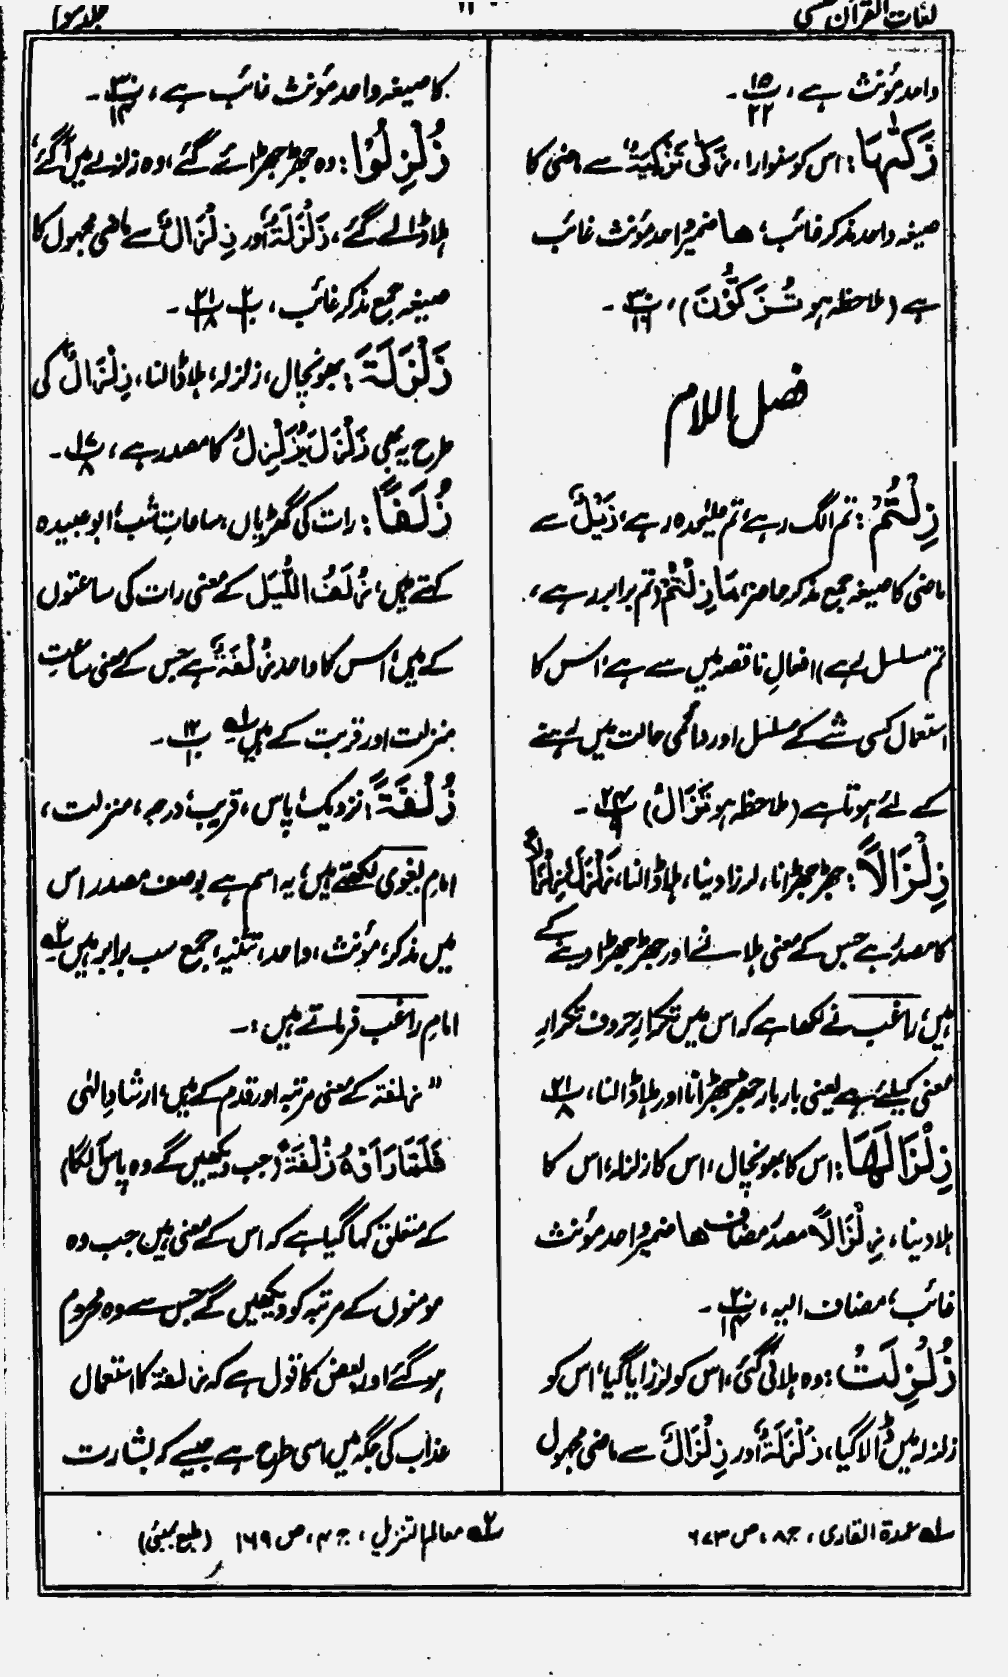 لغات القرآن
جلد سوم
واحد مؤنث ہے، پ ۱۵/۲۲ ۔
زَكّٰهَا : اس کو سنوارا، زَكّٰى تَزْكِيَةً سے ماضی کا
صیغہ واحد مذکر غائب، ھا ضمیر واحد مؤنث غائب
ہے (ملاحظہ ہو تُزَكُّوْنَ)، پ ۳۰/۱۶ ۔
فصل اللام
زِلْتُمْ : تم الگ رہے، تم علیٰحدہ رہے، زَيْلٌ سے
ماضی کا صیغہ جمع مذکر حاضر، مَا زِلْتُمْ (تم برابر رہے،
تم مسلسل رہے) افعالِ ناقصہ میں سے ہے، اس کا
استعمال کسی شے کے مسلسل اور دائمی حالت میں رہنے
کے لئے ہوتا ہے (ملاحظہ ہو تَزَالُ) پ ۲۴/۹ ۔
زِلْزَالًا : جھڑجھڑانا، لرزا دینا، ہلا ڈالنا، زَلْزَلَ يُزَلْزِلُ
کا مصدر ہے جس کے معنی ہلانے اور جھڑجھڑا دینے کے
ہیں، راغب نے لکھا ہے کہ اس میں تکرارِ حروف تکرارِ
معنی کیلئے ہے یعنی بار بار جھڑجھڑانا اور ہلا ڈالنا، پ ۲۱/۱۸
زِلْزَالَهَا : اس کا بھونچال، اس کا زلزلہ، اس کا
ہلا دینا، زِلْزَالًا مصدر مضاف ھا ضمیر واحد مؤنث
غائب، مضاف الیہ، پ ۳۰/۲۴ ۔
زُلْزِلَتْ : وہ ہلائی گئی، اس کو لرزایا گیا، اس کو
زلزلہ میں ڈالا گیا، زَلْزَلَةٌ اور زِلْزَالٌ سے ماضی مجہول
کا صیغہ واحد مؤنث غائب ہے، پ ۳۰/۲۴ ۔
زُلْزِلُوْا : وہ جھڑجھڑائے گئے، وہ زلزلے میں آگئے،
ہلا ڈالے گئے، زَلْزَلَةٌ اور زِلْزَالٌ سے ماضی مجہول کا
صیغہ جمع مذکر غائب، پ ۲/۱۰ پ ۲۱/۱۸ ۔
زَلْزَلَةَ : بھونچال، زلزلہ، ہلا ڈالنا، زِلْزَالٌ کی
طرح یہ بھی زَلْزَلَ يُزَلْزِلُ کا مصدر ہے، پ ۱۷/۸ ۔
زُلَفًا : رات کی گھڑیاں، ساعاتِ شب، ابو عبیدہ
کہتے ہیں، زُلَفُ اللَّيْلِ کے معنی رات کی ساعتوں
کے ہیں، اس کا واحد زُلْفَةٌ ہے جس کے معنی ساعت
منزلت اور قربت کے ہیں لہ ۱ پ ۱۲/۱۰ ۔
زُلْفَةً : نزدیک، پاس، قریب، درجہ، منزلت،
امام بغوی لکھتے ہیں، یہ اسم ہے بوصف مصدر اس
میں مذکر، مؤنث، واحد، تثنیہ، جمع سب برابر ہیں ۲ہ
امام راغب فرماتے ہیں :۔
" زلفۃ کے معنی مرتبہ اور قدم کے ہیں، ارشادِ الٰہی
فَلَمَّا رَأَوْهُ زُلْفَةً (جب دیکھیں گے وہ پاس آ لگا)
کے متعلق کہا گیا ہے کہ اس کے معنی ہیں جب وہ
مومنوں کے مرتبہ کو دیکھیں گے جس سے وہ محروم
ہو گئے اور بعض کا قول ہے کہ زلفۃ کا استعمال
عذاب کی جگہ میں اسی طرح ہے جیسے کہ بشارت
۱ہ عمدۃ القاری، ج ۸، ص ۶۷۳
۲ہ معالم التنزیل، ج ۴، ص ۱۶۹ (طبع بمبئی)